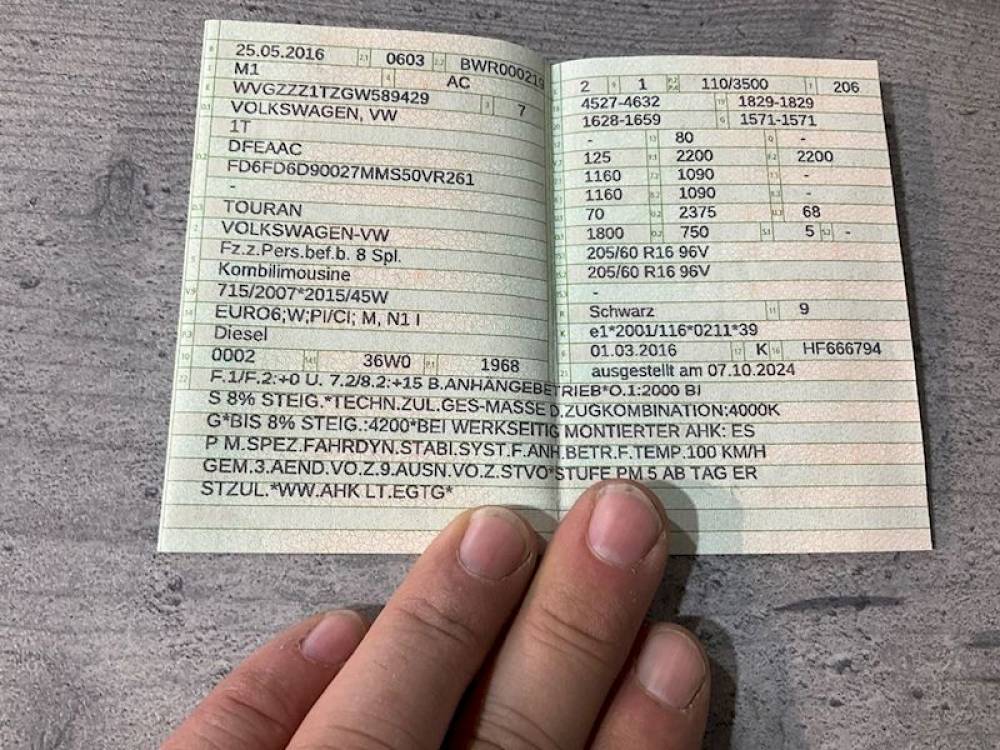 25.05.2016 0603 BWR000219
M1 AC
WVGZZZ1TZGW589429 7
VOLKSWAGEN, VW
1T
DFEAAC
FD6FD6D90027MMS50VR261
-
TOURAN
VOLKSWAGEN-VW
Fz.z.Pers.bef.b. 8 Spl.
Kombilimousine
715/2007*2015/45W
EURO6;W;PI/CI; M, N1 I
Diesel
0002 36W0 1968
2 1 110/3500 206
4527-4632 1829-1829
1628-1659 1571-1571
- 80 -
125 2200 2200
1160 1090 -
1160 1090 -
70 2375 68
1800 750 5 -
205/60 R16 96V
205/60 R16 96V
-
Schwarz 9
e1*2001/116*0211*39
01.03.2016 K HF666794
ausgestellt am 07.10.2024
F.1/F.2:+0 U. 7.2/8.2:+15 B.ANHÄNGEBETRIEB*O.1:2000 BI
S 8% STEIG.*TECHN.ZUL.GES-MASSE D.ZUGKOMBINATION:4000K
G*BIS 8% STEIG.:4200*BEI WERKSEITIG MONTIERTER AHK: ES
P M.SPEZ.FAHRDYN.STABI.SYST.F.ANH.BETR.F.TEMP.100 KM/H
GEM.3.AEND.VO.Z.9.AUSN.VO.Z.STVO*STUFE PM 5 AB TAG ER
STZUL.*WW.AHK LT.EGTG*